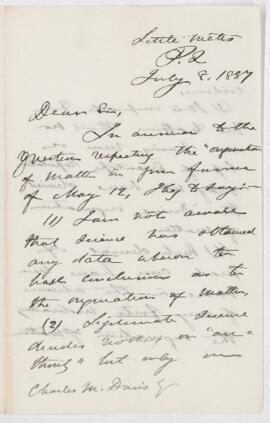 Little Metis
P.Q
July 8. 1887
Dear Sir,
In answer to the
question respecting the "origination
of Matter in your favour
of May 12, I beg to say:-
(1) I am not aware
that Science has obtained
any data whereon to
base conclusions as to
the origination of Matter.
(2) Legitimate Science
decides nothing on "au-
thority" but only on
Charles M. Davis Esq